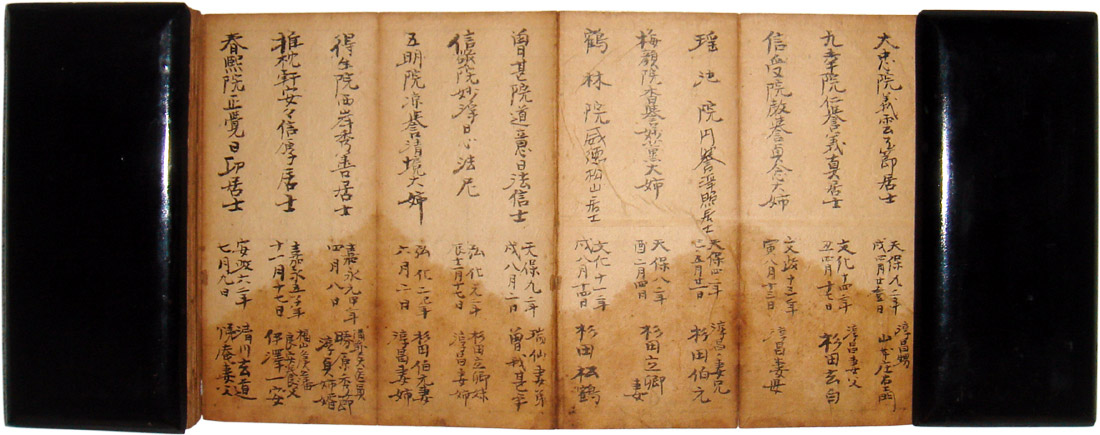 大忠院義雲了節居士 天保九年戌四月廿五日 淳昌甥 山本庄右エ門
九幸院仁誉義真居士 文化十四年丑四月十七日 淳昌妻父 杉田玄白
信受院啟誉貞念大姉 文政十三年寅八月十三日 淳昌妻母
瑶池院円誉淨照居士 天保四年五月廿一日 淳昌妻兄 杉田伯元
梅顔院香誉妙薫大姉 天保八年酉二月四日 杉田立卿妻
鶴林院威徳松山居士 文化十一年戌八月十四日 杉田松鶴
曽甚院道意日法信士 天保九年戌八月一日 瑞仙妻弟 曽我甚宇
信敬院妙淳日心法尼 弘化元年辰十二月十七日 杉田立卿妹 淳昌妻姉
五明院凉誉清境大姉 弘化二年六月二日 杉田伯元妻 淳昌妻姉
得生院西岸秀善居士 嘉永元年四月八日 勝原 淳貞姉婿
推枕軒安々信淳居士 嘉永五年十一月十七日 福山 伊澤一安
春熙院正覚日印居士 安政六年七月九日 清川玄道 妻父